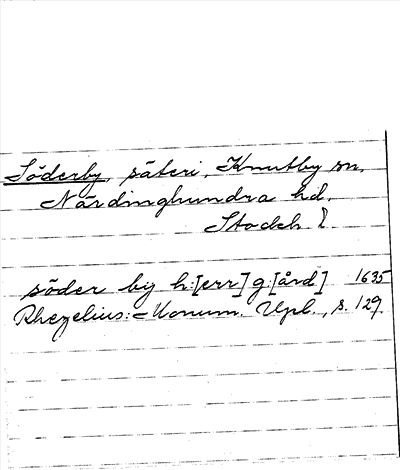 Söderby, säteri, Knutby sn,
Närdinghundra hd.
Stockh l.
söder by h:[err] g:[ård] 1635
Rhezelius: Monum. Upl., s. 129.